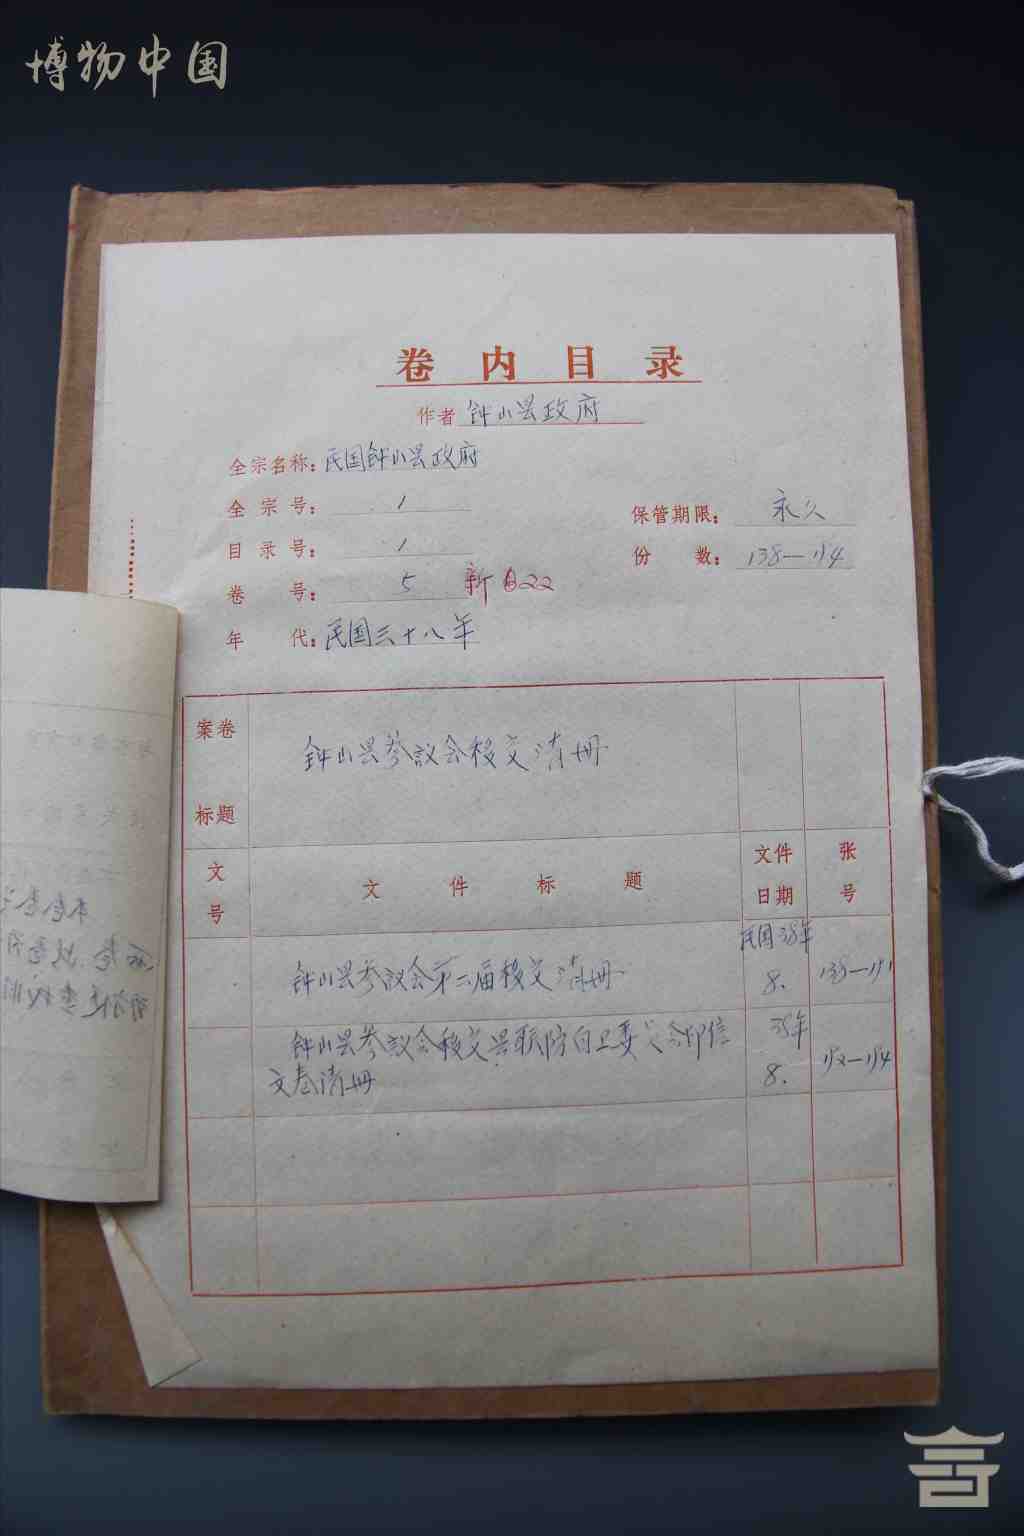 博物中国
卷内目录
作者 钟山县政府
全宗名称：民国钟山县政府
全宗号： 1
保管期限： 永久
目录号： 1
份数： 138—154
卷号： 5 新目22
年代：民国三十八年
案卷标题
钟山县参议会移交清册
文号 文件标题 文件日期 张号
钟山县参议会第二届移交清册 民国38年8. 138—151
钟山县参议会移交县联防自卫委员会印信
文卷清册 38年8. 152—154